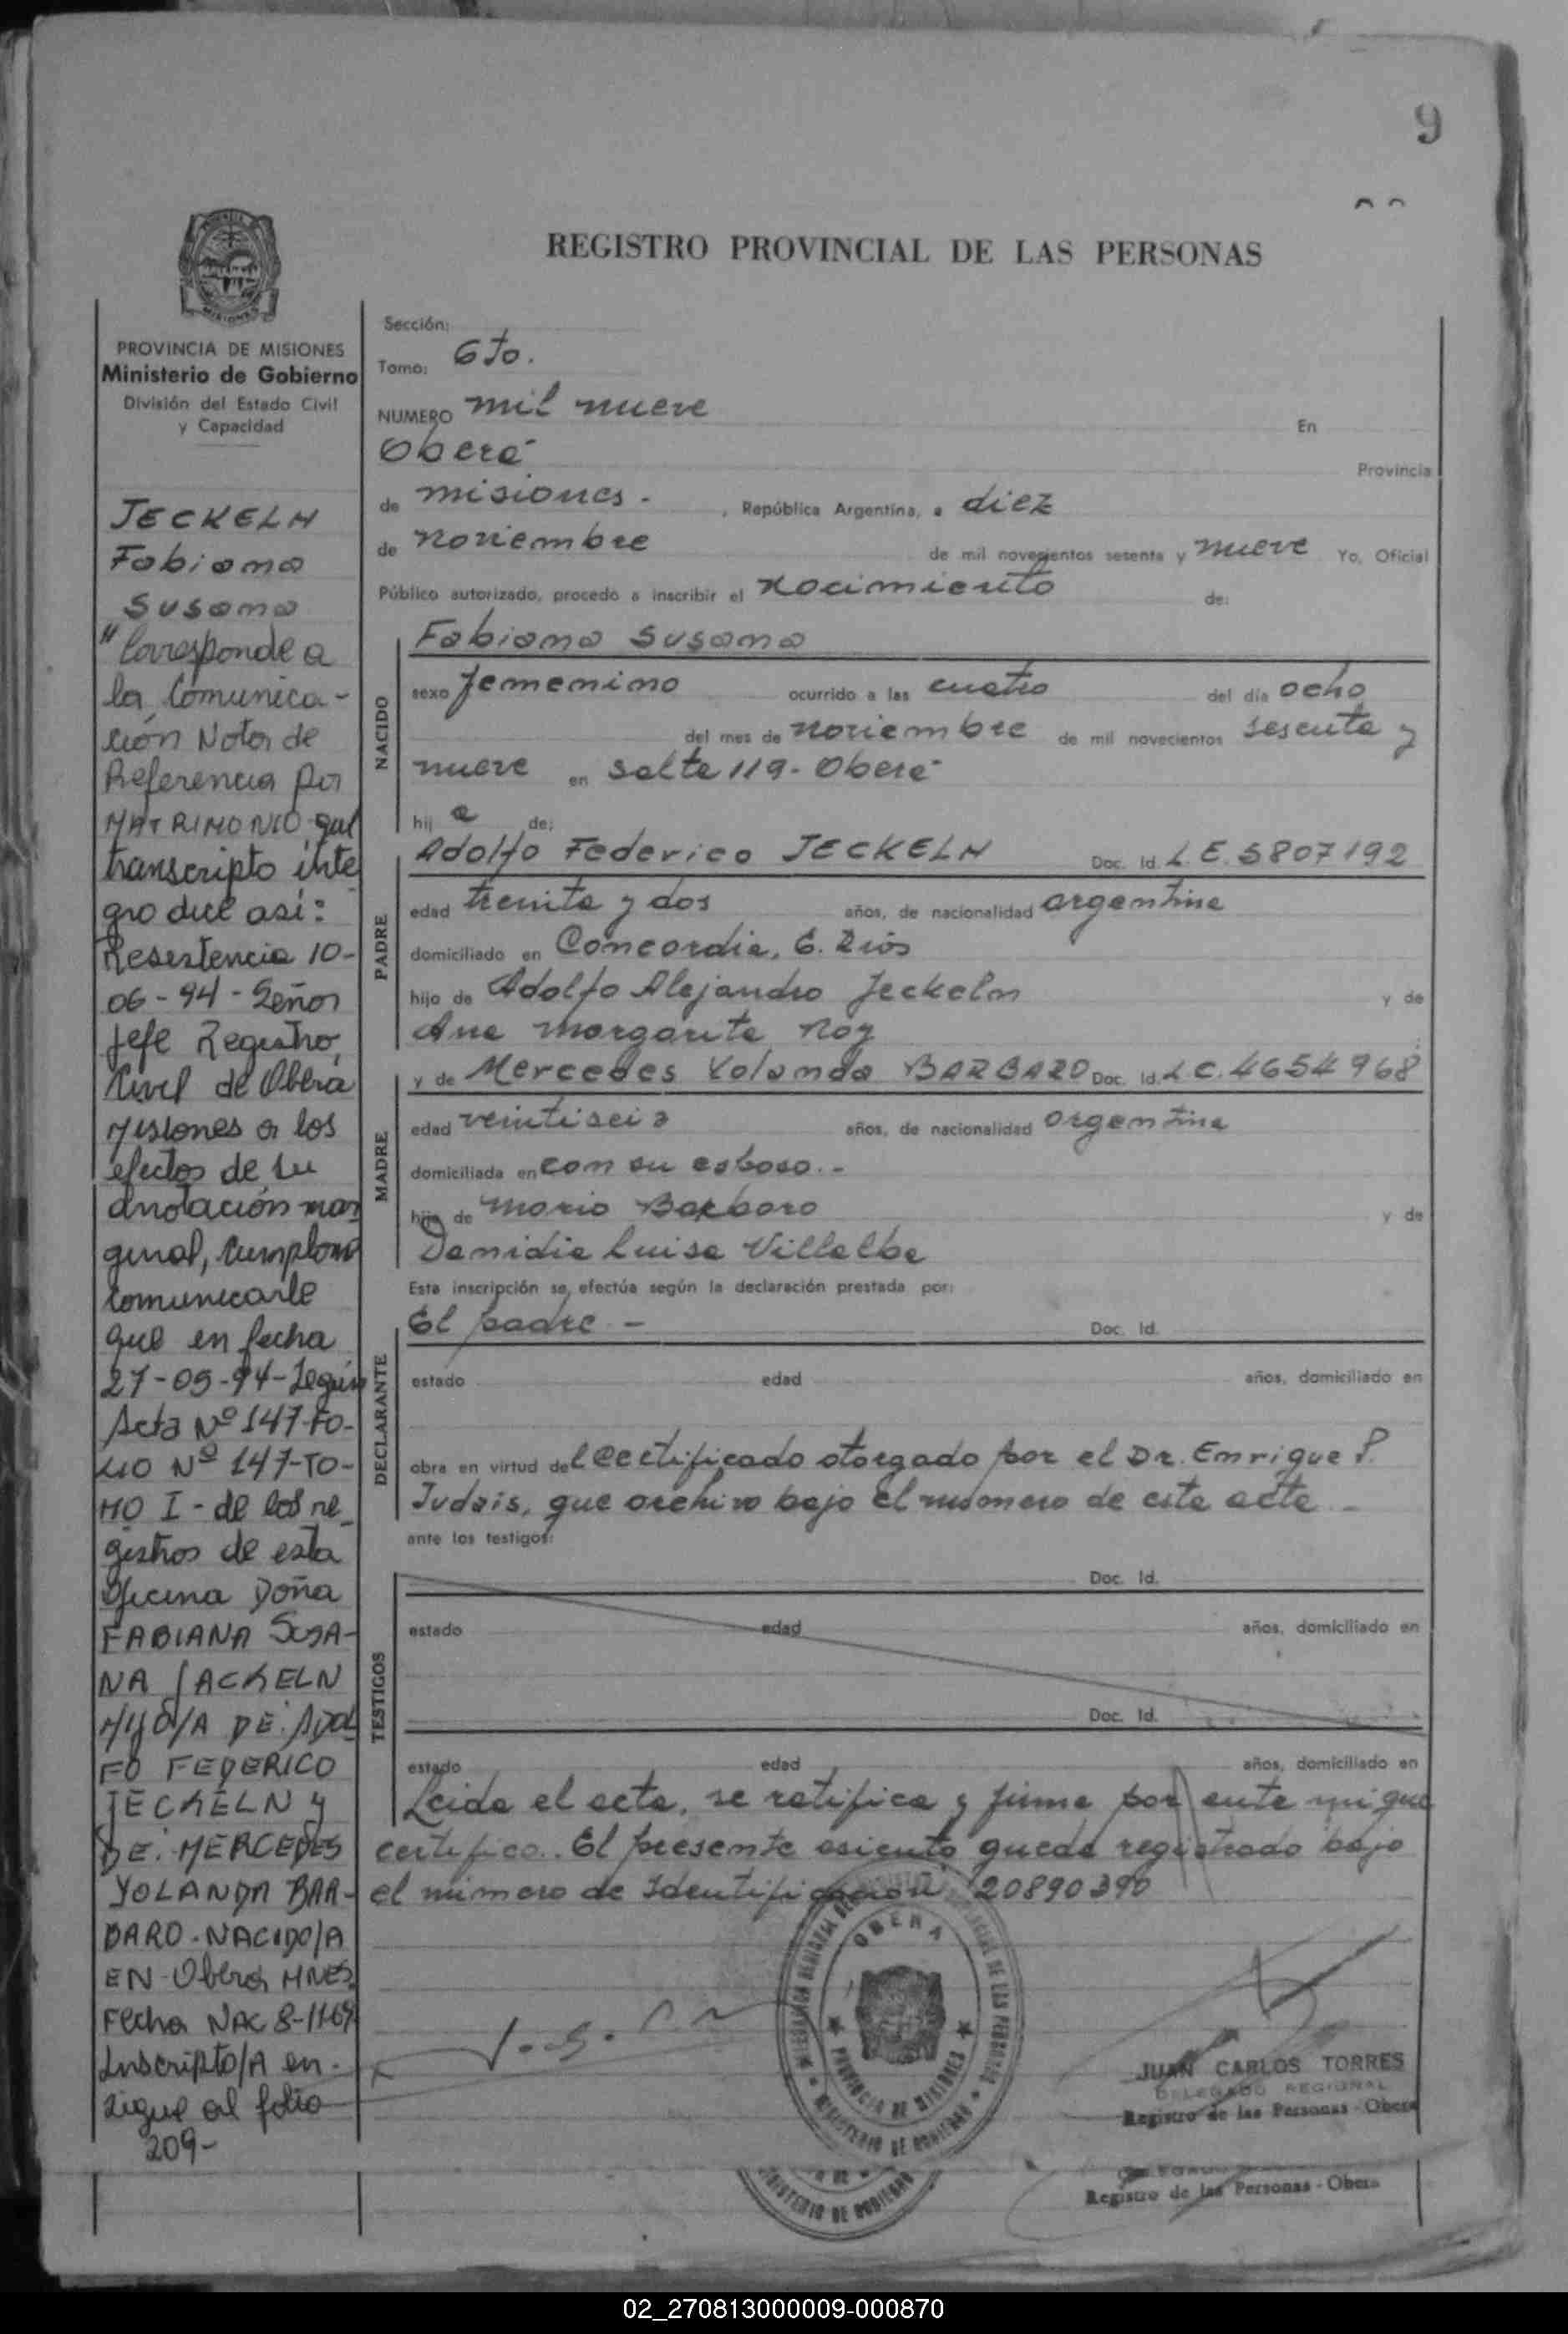 9
REGISTRO PROVINCIAL DE LAS PERSONAS
PROVINCIA DE MISIONES
Ministerio de Gobierno
División del Estado Civil
y Capacidad
JECKELN
Fabiana
Susana
"Corresponde a
la Comunica-
ción Nota de
Referencia por
MATRIMONIO que
transcripto inte
gro dice asi:
Resistencia 10-
06-94-Señor
Jefe Registro
Civil de Oberá
Misiones a los
efectos de su
anotación mar
ginal, cumplome
comunicarle
que en fecha
27-05-94-Según
Acta Nº 147-FO-
LIO Nº 147-TO-
MO I - de los re_
gistros de esta
Oficina Doña
FABIANA SUSA-
NA JACKELN
HIJO/A DE: ADOL
FO FEDERICO
JECKELN y
DE: MERCEDES
YOLANDA BAR-
BARO-NACIDO/A
EN-Oberá MNES
Fecha NAC 8-11-69
Inscripto/A en-
sigue al folio
209-
Sección:
Tomo: 6to.
NUMERO mil nueve En
Oberá Provincia
de misiones- , República Argentina, a diez
de noviembre de mil novecientos sesenta y nueve Yo, Oficial
Público autorizado, procedo a inscribir el nacimiento de:
NACIDO
Fabiana Susana
sexo femenino ocurrido a las cuatro del día ocho
del mes de noviembre de mil novecientos sesenta y
nueve en Salta 119-Oberá
hij a de:
PADRE
Adolfo Federico JECKELN Doc. Id. L.E. 5807192
edad treinta y dos años, de nacionalidad argentina
domiciliado en Concordia, E. Ríos
hijo de Adolfo Alejandro Jeckeln y de
Ana Margarita Roy
MADRE
y de Mercedes Yolanda BARBARO Doc. Id. L.C. 4654968
edad veintiseis años, de nacionalidad argentina
domiciliada en con su esposo.-
hija de Mario Barbaro y de
Damidia Luisa Villalba
Esta inscripción se efectúa según la declaración prestada por:
DECLARANTE
El padre - Doc. Id.
estado edad años, domiciliado en
obra en virtud del certificado otorgado por el Dr. Enrique P.
Judais, que archivo bajo el número de esta acta -
ante los testigos:
TESTIGOS
Doc. Id.
estado edad años, domiciliado en
Doc. Id.
estado edad años, domiciliado en
Leida el acta, se ratifica y firma por ante mi que
certifico. El presente asiento queda registrado bajo
el número de Identificación 20890390
OBERA
PROVINCIA DE MISIONES
MINISTERIO DE GOBIERNO
JUAN CARLOS TORRES
DELEGADO REGIONAL
Registro de las Personas - Obera
MINISTERIO DE GOBIERNO
Registro de las Personas - Obera
02_270813000009-000870